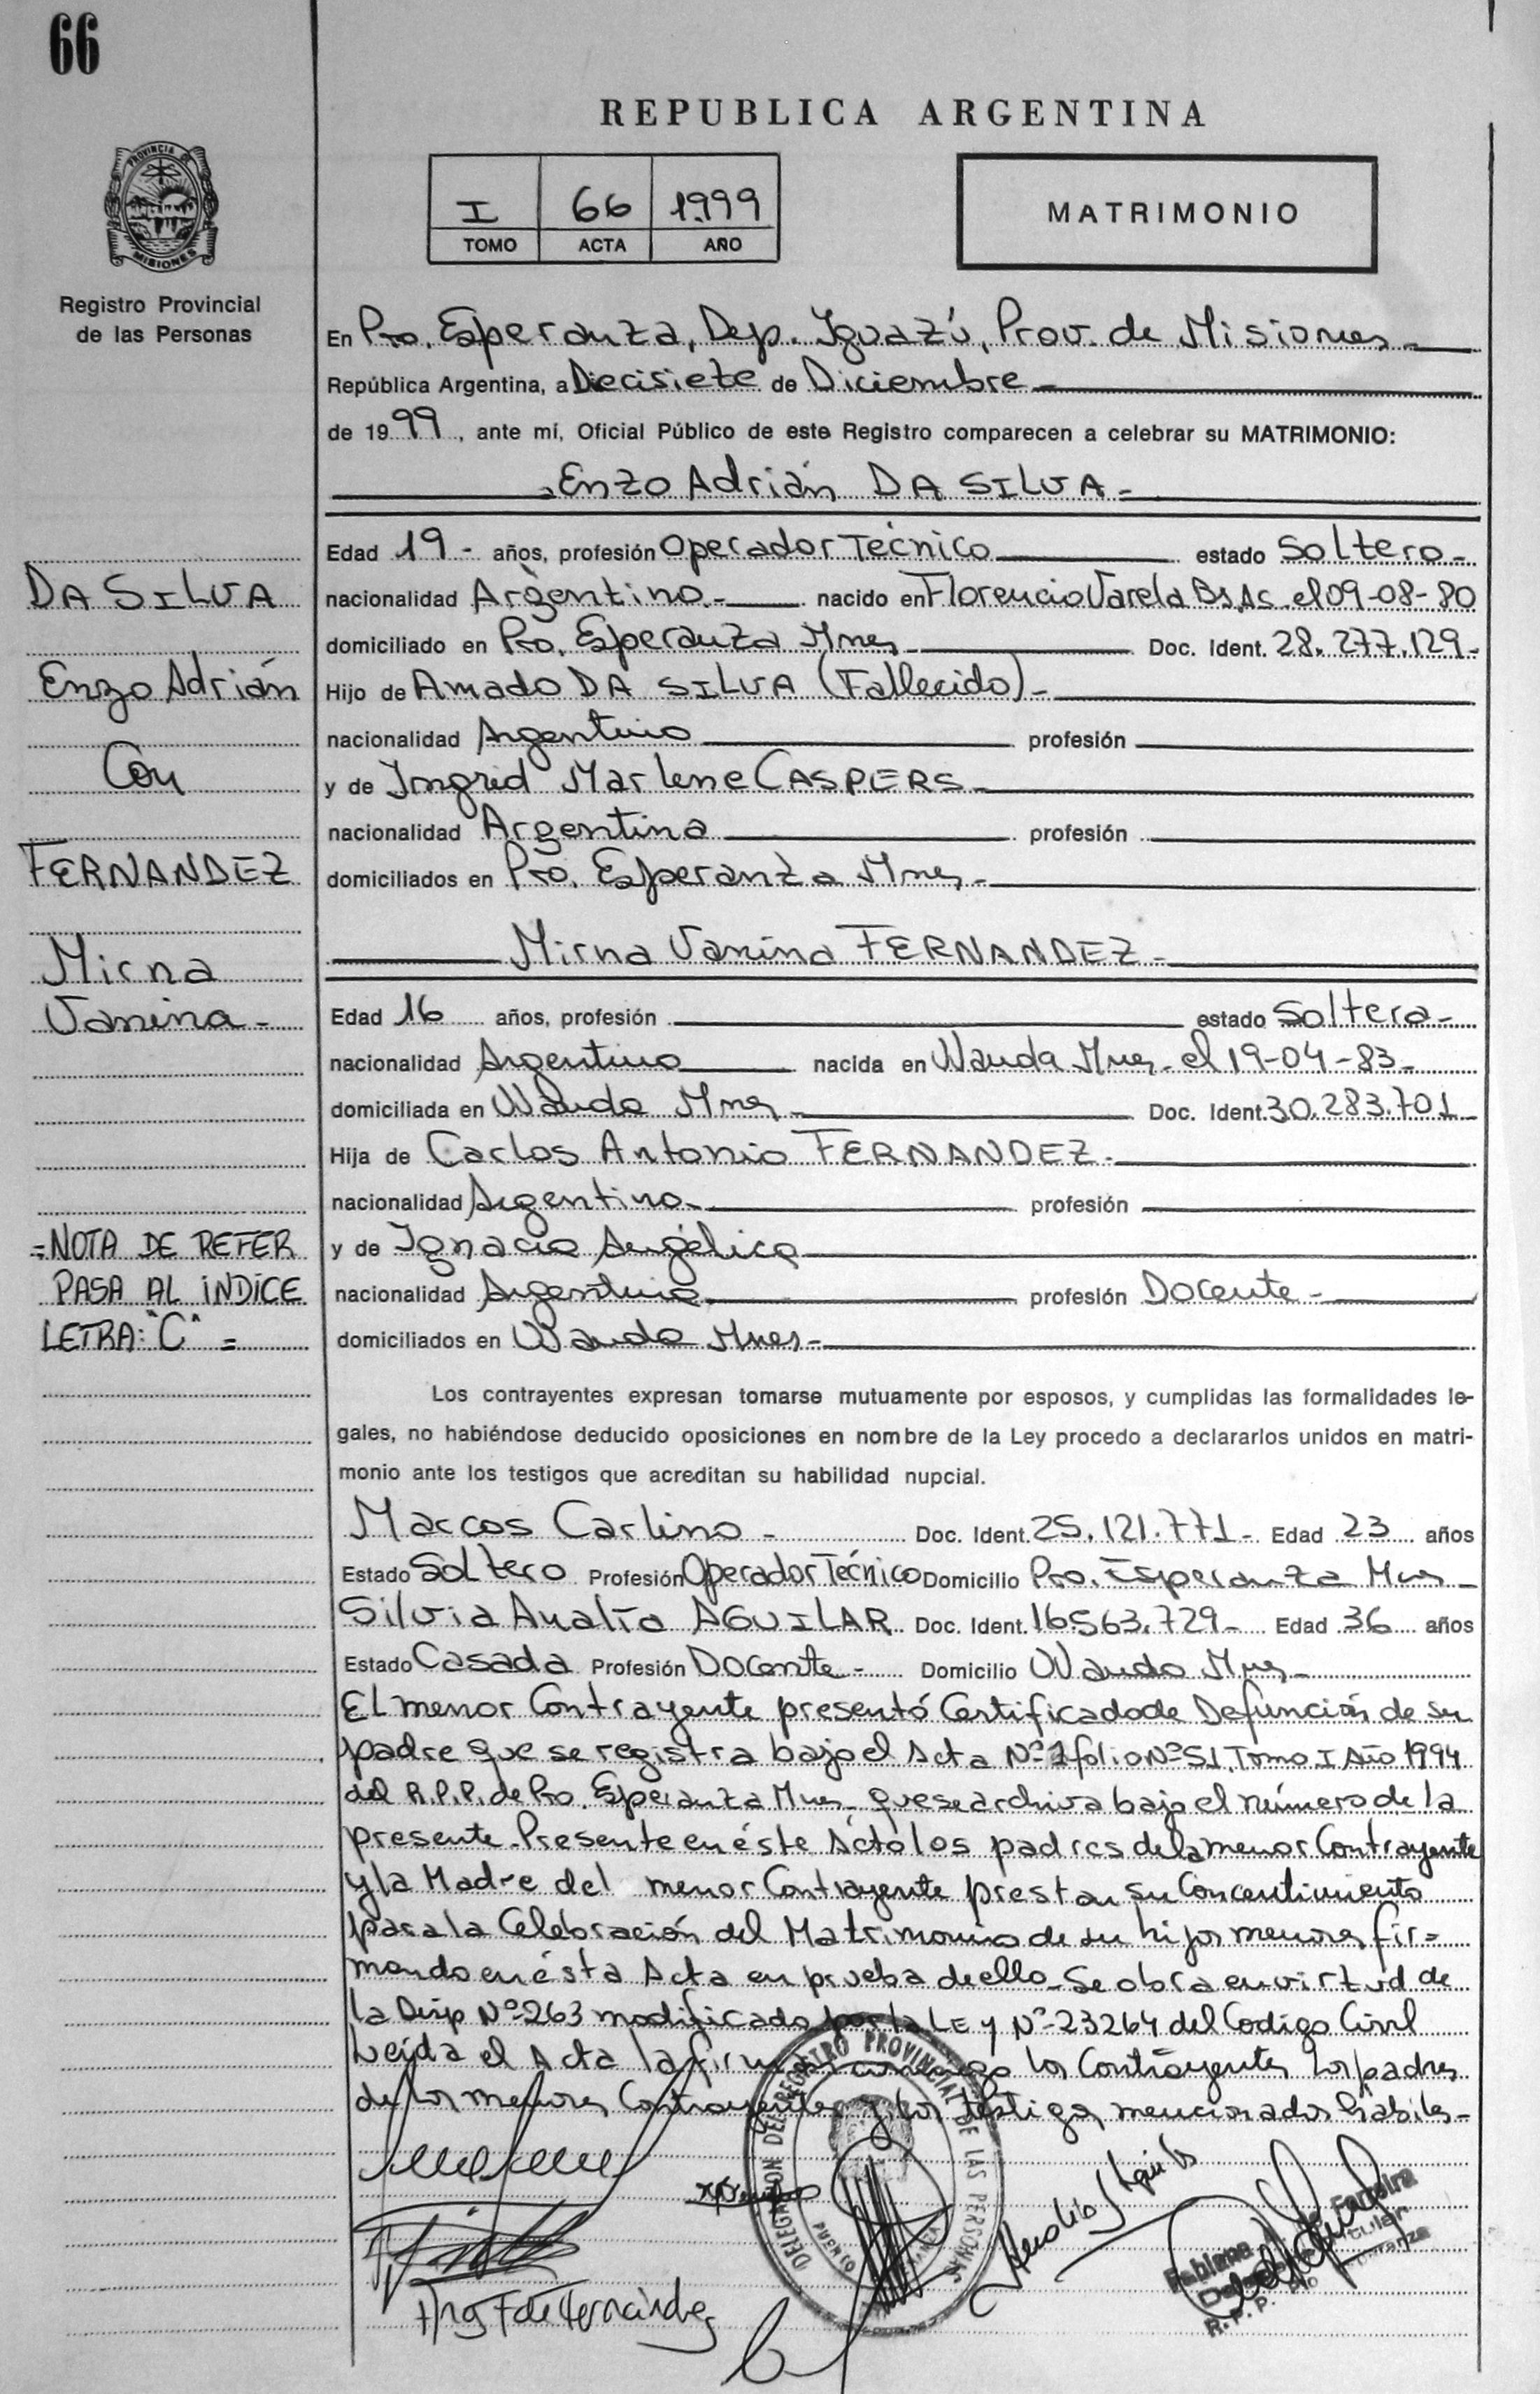 66
REPUBLICA ARGENTINA
I 66 1999
TOMO ACTA AÑO
MATRIMONIO
PROVINCIA DE
MISIONES
Registro Provincial
de las Personas
En Pto. Esperanza, Dep. Iguazú, Prov. de Misiones
República Argentina, a Diecisiete de Diciembre
de 1999, ante mí, Oficial Público de este Registro comparecen a celebrar su MATRIMONIO:
Enzo Adrián DA SILVA
Edad 19 - años, profesión Operador Técnico estado Soltero
DA SILVA
nacionalidad Argentino nacido en Florencio Varela Bs.As. el 09-08-80
domiciliado en Pto. Esperanza Mnes Doc. Ident. 28.277.129
Enzo Adrián
Hijo de Amado DA SILVA (Fallecido)
nacionalidad Argentino profesión
Con
y de Ingrid Marlene CASPERS
nacionalidad Argentina profesión
FERNANDEZ
domiciliados en Pto. Esperanza Mnes
Mirna
Mirna Vanina FERNANDEZ
Vanina
Edad 16 años, profesión estado Soltera
nacionalidad Argentino nacida en Wanda Mnes el 19-04-83
domiciliada en Wanda Mnes Doc. Ident. 30.283.701
Hija de Carlos Antonio FERNANDEZ
nacionalidad Argentino profesión
=NOTA DE REFER
y de Ignacia Angélica
PASA AL INDICE
nacionalidad Argentina profesión Docente
LETRA: "C" =
domiciliados en Wanda Mnes
Los contrayentes expresan tomarse mutuamente por esposos, y cumplidas las formalidades le-
gales, no habiéndose deducido oposiciones en nombre de la Ley procedo a declararlos unidos en matri-
monio ante los testigos que acreditan su habilidad nupcial.
Marcos Carlino Doc. Ident. 25.121.771 Edad 23 años
Estado Soltero Profesión Operador Técnico Domicilio Pto. Esperanza Mnes
Silvia Analía AGUILAR Doc. Ident. 16.563.729 Edad 36 años
Estado Casada Profesión Docente Domicilio Wanda Mnes
El menor Contrayente presentó Certificado de Defunción de su
padre que se registra bajo el Acta Nº folio Nº 51, Tomo I Año 1994
del R.P.P. de Pto. Esperanza Mnes que se archiva bajo el número de la
presente. Presente en éste Acto los padres de la menor Contrayente
y la Madre del menor Contrayente prestan su Concentimiento
para la Celebración del Matrimonio de su hijos menores fir-
mando en ésta Acta en prueba de ello. Se obra en virtud de
la Disp Nº 263 modificado por la LEy Nº 23264 del Codigo Civil
Leida el Acta la firman conmigo los Contrayentes los padres
de los menores Contrayentes y los testigos mencionados hábiles
DELEGACION DEL REGISTRO PROVINCIAL DE LAS PERSONAS
PUERTO
Fabiana
R. P. P.